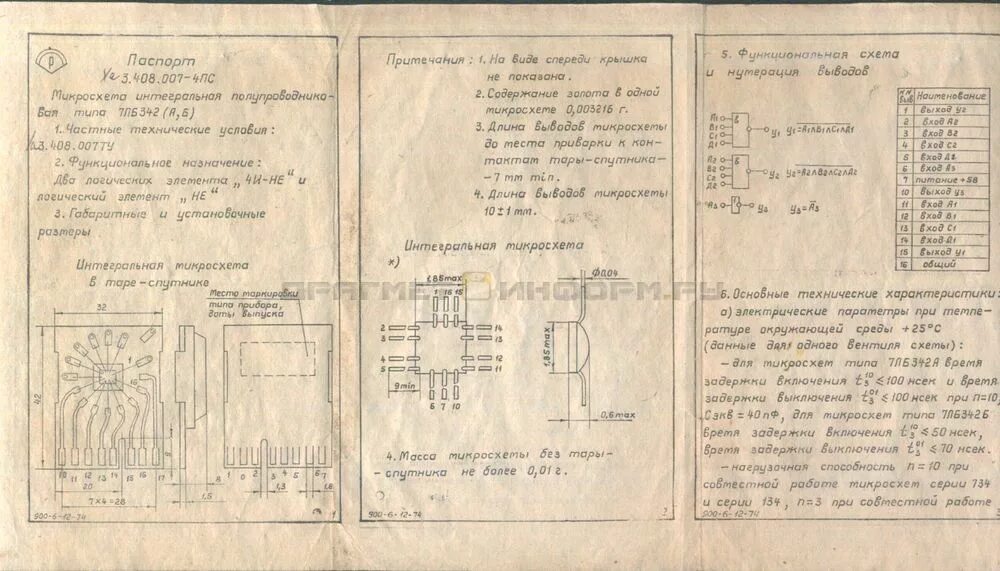 Паспорт
Уг 3.408.007-4ПС
Микросхема интегральная полупроводнико-
вая типа 7ЛБ342 (А,Б)
1. Частные технические условия:
3.408.007ТУ
2. Функциональное назначение:
Два логических элемента „4И-НЕ“ и
логический элемент „НЕ“
3. Габаритные и установочные
размеры
Интегральная микросхема
в таре-спутнике
Место маркировки
типа прибора,
даты выпуска
32
42
1
16
10 11 12 13 14 15 16 17
1 0 2 3 4 5 6 7
20
7×4=28
8
1,5
1,3
1,8
900-6-12-74
1
Примечания: 1. На виде спереди крышка
не показана.
2. Содержание золота в одной
микросхеме 0,003216 г.
3. Длина выводов микросхемы
до места приварки к кон-
тактам тары-спутника-
-7 mm min.
4. Длина выводов микросхемы
10±1 mm.
Интегральная микросхема
*)
1,85max
ф0,04
1 16 15
2
3
4
5
14
13
12
11
9min
6 7 10
1,85max
0,6max
4. Масса микросхемы без тары-
-спутника не более 0,01 г.
900-6-12-74
2
5. Функциональная схема
и нумерация выводов
А1
В1
С1
Д1
&
У1
У1=А1ΛВ1ΛС1ΛД1
А2
В2
С2
Д2
&
У2
У2=А2ΛВ2ΛС2ΛД2
А3
У3
У3=А3
№№ выв Наименование
1 выход У2
2 вход А2
3 вход В2
4 вход С2
5 вход Д2
6 вход А3
7 питание +5В
10 выход У3
11 вход А1
12 вход В1
13 вход С1
14 вход Д1
15 выход У1
16 общий
6. Основные технические характеристики:
а) электрические параметры при темпе-
ратуре окружающей среды +25°С
(данные для одного вентиля схемы):
-для микросхем типа 7ЛБ342А время
задержки включения t³¹⁰ ≤100 нсек и время
задержки выключения t³⁰¹ ≤100 нсек при n=10,
Сэкв=40пФ, для микросхем типа 7ЛБ342Б
время задержки включения t³¹⁰ ≤50 нсек,
время задержки выключения t³⁰¹ ≤70 нсек.
-нагрузочная способность n=10 при
совместной работе микросхем серии 734
и серии 134, n=3 при совместной работе
900-6-12-74
3
ДРАГМЕТ ИНФОРМ.РУ